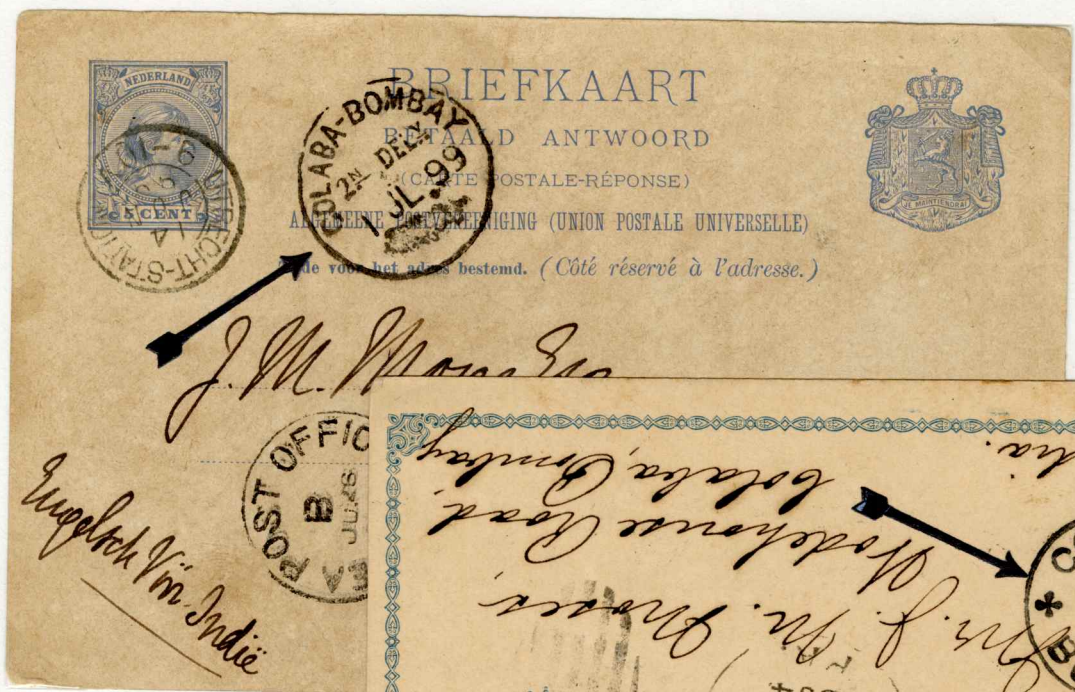 NEDERLAND
5 CENT
BRIEFKAART
BETAALD ANTWOORD
(CARTE POSTALE-RÉPONSE)
ALGEMEENE POSTVEREENIGING (UNION POSTALE UNIVERSELLE)
Zijde voor het adres bestemd. (Côté réservé à l'adresse.)
JE MAINTIENDRAI
UTRECHT-STATION
COLABA-BOMBAY
2N DELY
1 JU. 99
J. M. Moses
SEA POST OFFIC
B
JU 26
Engelsch Vóór-Indië
Mr. J. M. Moses,
Wodehouse Road,
Colaba, Bombay